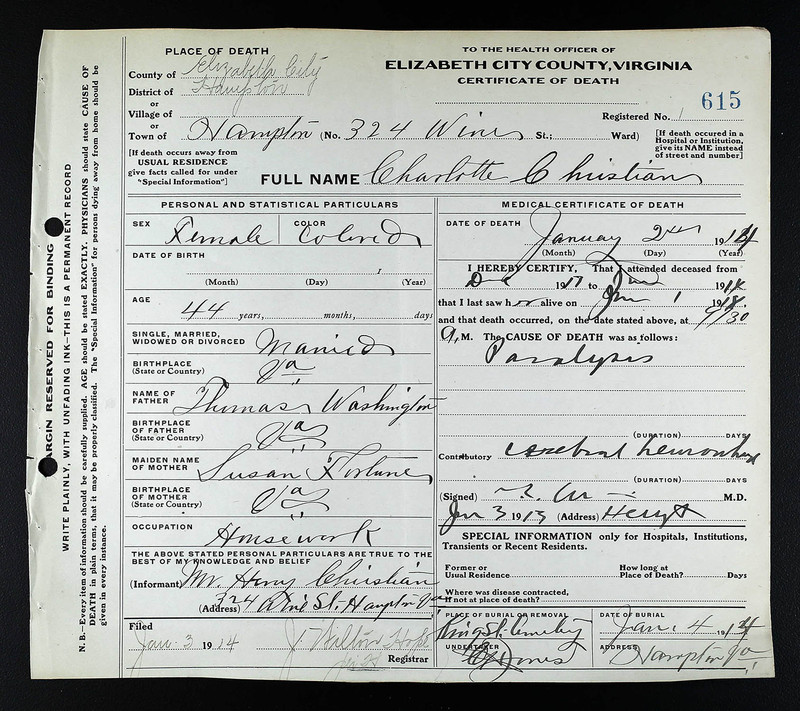 PLACE OF DEATH
County of Elizabeth City
District of Hampton
or
Village of
or
Town of Hampton (No. 324 Wine St.; Ward)
[If death occurs away from
USUAL RESIDENCE
give facts called for under
"Special Information"]
TO THE HEALTH OFFICER OF
ELIZABETH CITY COUNTY, VIRGINIA
CERTIFICATE OF DEATH
Registered No. 1 615
[If death occured in a
Hospital or Institution,
give its NAME instead
of street and number]
FULL NAME Charlotte Christian
MARGIN RESERVED FOR BINDING
WRITE PLAINLY, WITH UNFADING INK—THIS IS A PERMANENT RECORD
N.B.—Every item of information should be carefully supplied. AGE should be stated EXACTLY. PHYSICIANS should state CAUSE OF
DEATH in plain terms, that it may be properly classified. The "Special Information" for persons dying away from home should be
given in every instance.
PERSONAL AND STATISTICAL PARTICULARS
SEX Female COLOR Colored
DATE OF BIRTH
(Month) (Day) (Year)
AGE
44 years, months, days
SINGLE, MARRIED,
WIDOWED OR DIVORCED Married
BIRTHPLACE
(State or Country) Va
NAME OF
FATHER Thomas Washington
BIRTHPLACE
OF FATHER
(State or Country) Va
MAIDEN NAME
OF MOTHER Susan Fortune
BIRTHPLACE
OF MOTHER
(State or Country) Va
OCCUPATION
Housework
THE ABOVE STATED PERSONAL PARTICULARS ARE TRUE TO THE
BEST OF MY KNOWLEDGE AND BELIEF
(Informant) Mr. Henry Christian
(Address) 324 St. Hampton Va
Filed
Jan. 3 1914 J Wilton Hope
Registrar
MEDICAL CERTIFICATE OF DEATH
DATE OF DEATH
January 2nd 1914
(Month) (Day) (Year)
I HEREBY CERTIFY, That I attended deceased from
191 to 1914
that I last saw her alive on Jan 1 191
and that death occurred, on the date stated above, at 9/30
A, M. The CAUSE OF DEATH was as follows:
Paralysis
(DURATION) DAYS
Contributory cerebral
(DURATION) DAYS
(Signed) M.D.
Jan 3 1913 (Address)
SPECIAL INFORMATION only for Hospitals, Institutions,
Transients or Recent Residents.
Former or
Usual Residence
How long at
Place of Death? Days
Where was disease contracted,
If not at place of death?
PLACE OF BURIAL OR REMOVAL
King St. Cemetery
DATE OF BURIAL
Jan. 4 1914
UNDERTAKER
Jones
ADDRESS
Hampton Va